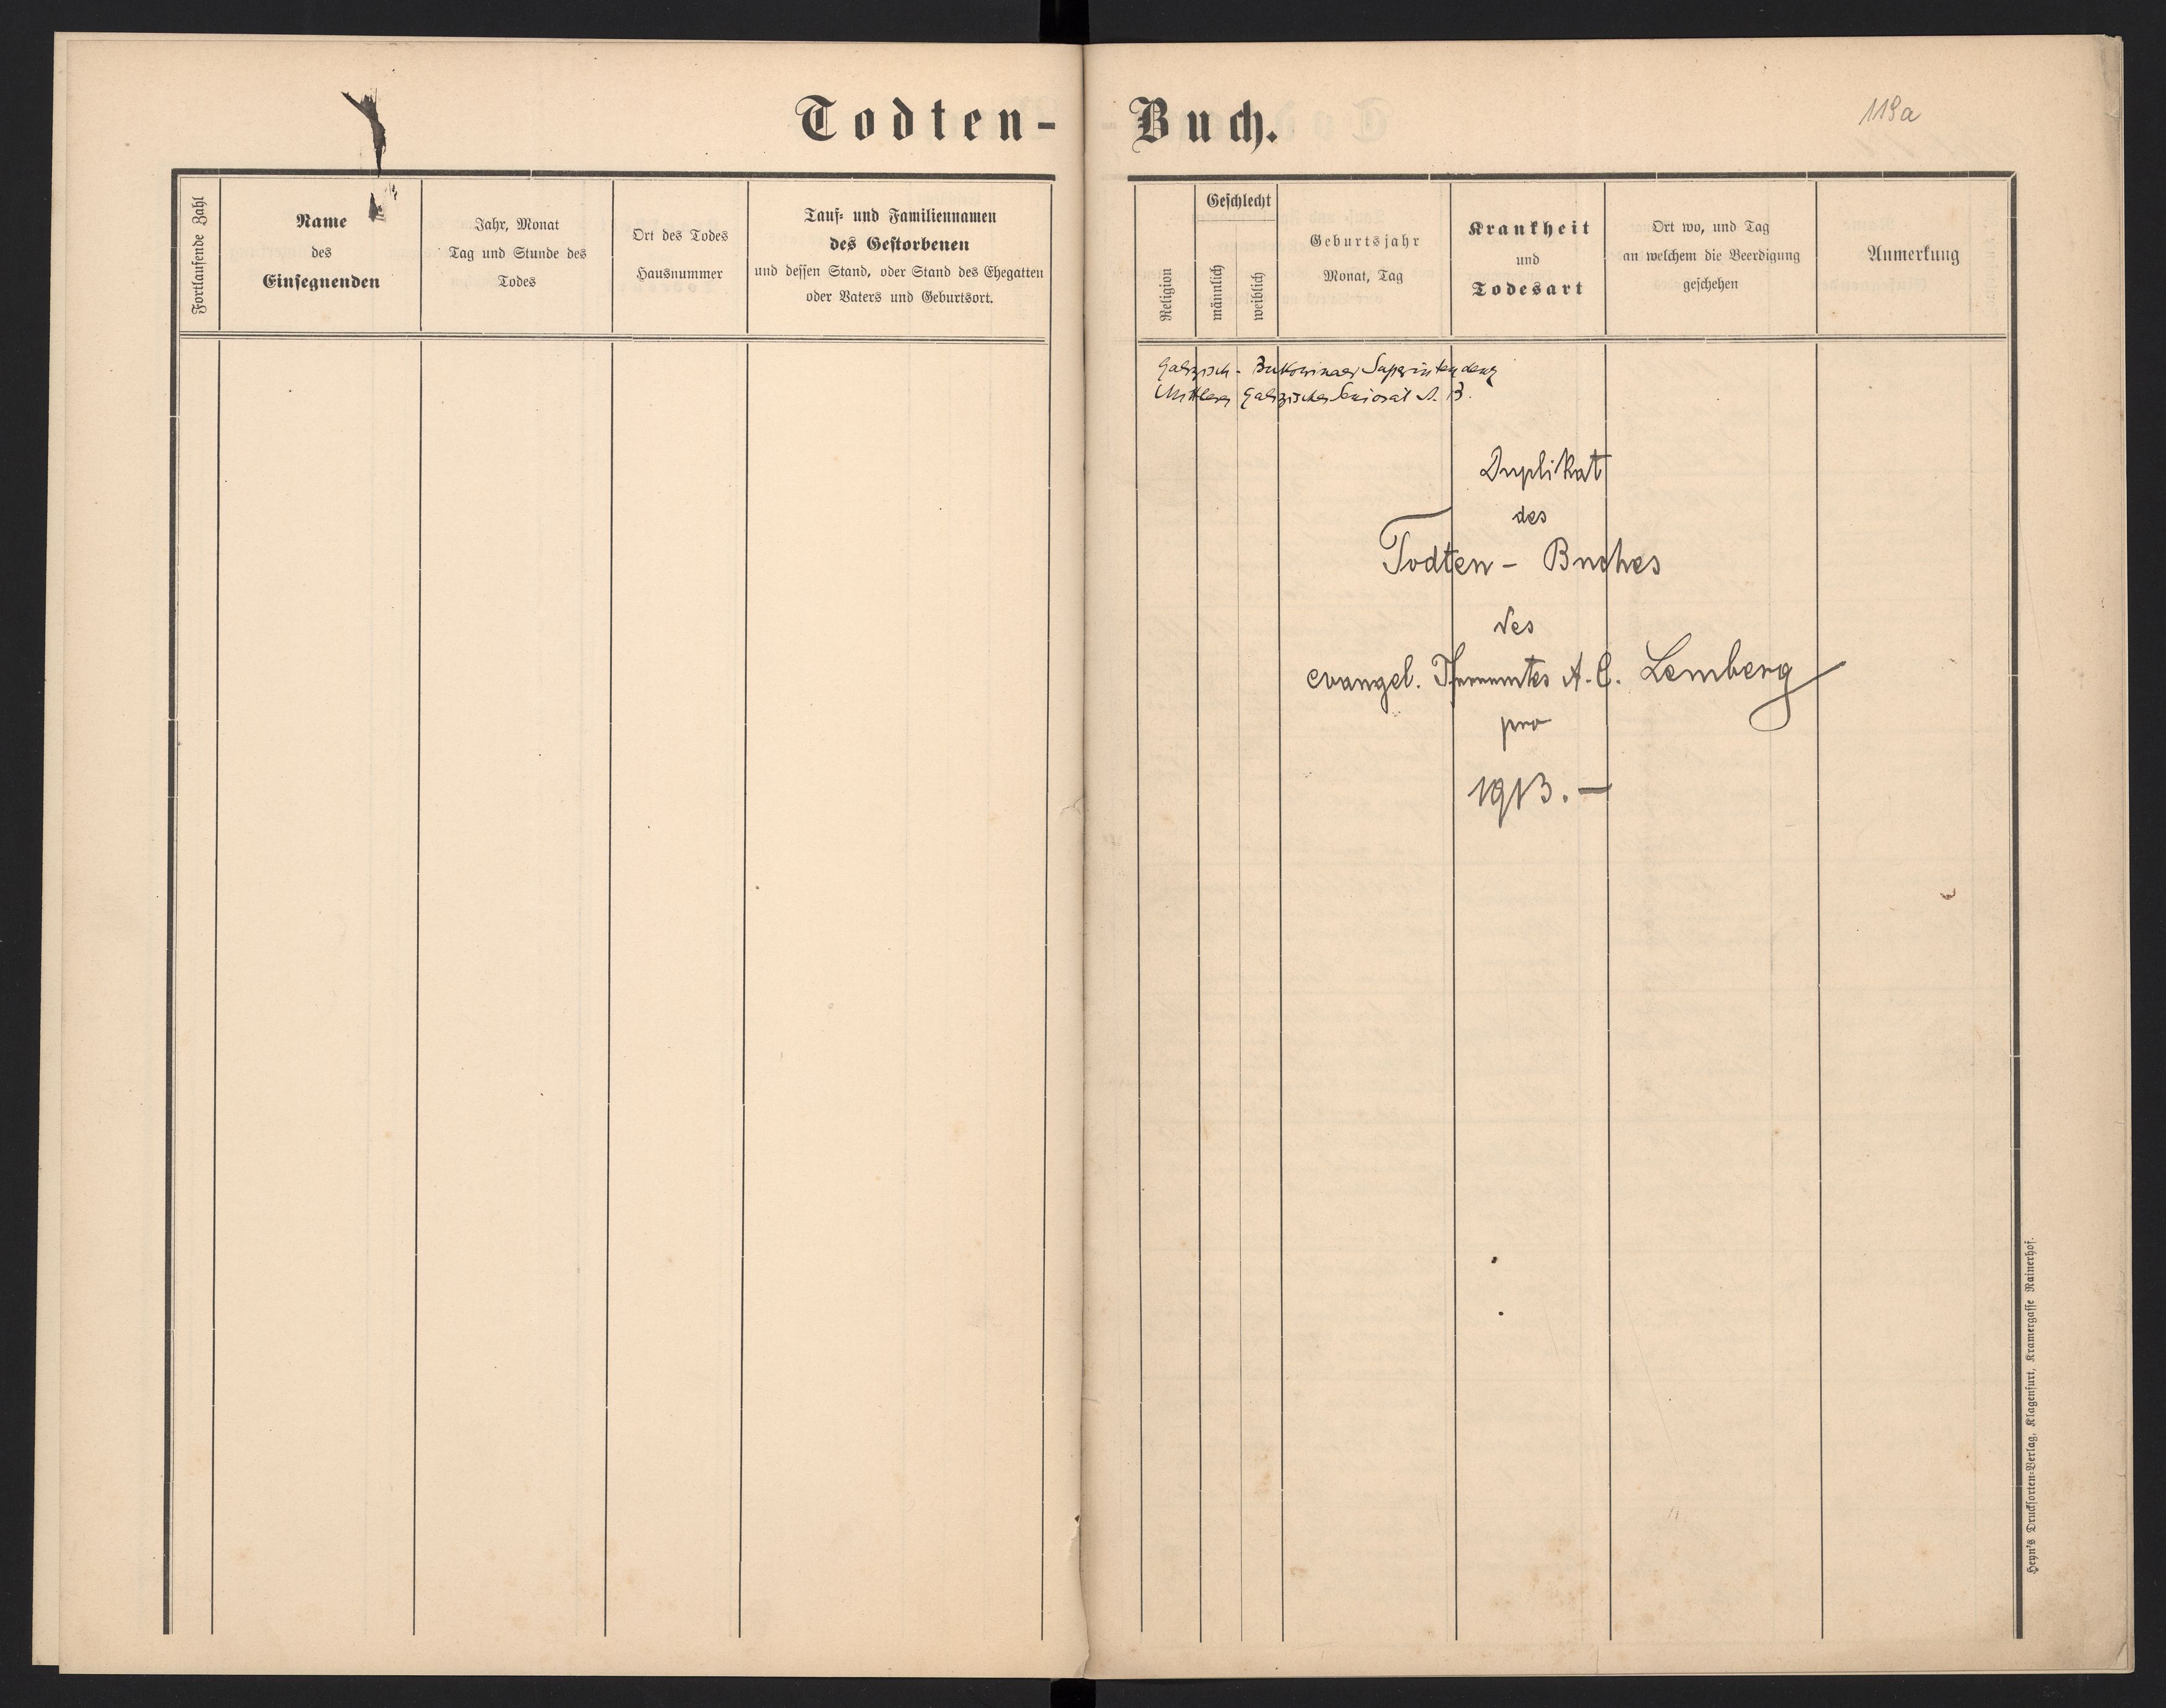 Todten-Buch.
119a
Fortlaufende Zahl
Name
des
Einsegnenden
Jahr, Monat
Tag und Stunde des
Todes
Ort des Todes
Hausnummer
Tauf- und Familiennamen
des Gestorbenen
und dessen Stand, oder Stand des Ehegatten
oder Vaters und Geburtsort.
Religion
Geschlecht
männlich
weiblich
Geburtsjahr
Monat, Tag
Krankheit
und
Todesart
Ort wo, und Tag
an welchem die Beerdigung
geschehen
Anmerkung
Galizisch-Bukowinaer Superintendenz
Mittleres Galizisches Seniorat A. B.
Duplikat
des
Todten-Buches
des
evangel. Pfarramtes A. C. Lemberg
pro
1913.—
Heyn's Drucksorten-Verlag, Klagenfurt, Kramergasse Rainerhof.